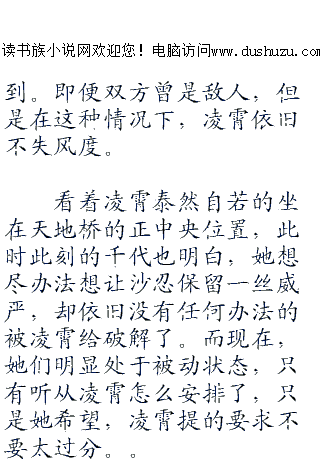 读书族小说网欢迎您！电脑访问www.dushuzu.com
到。即便双方曾是敌人，但
是在这种情况下，凌霄依旧
不失风度。
看着凌霄泰然自若的坐
在天地桥的正中央位置，此
时此刻的千代也明白，她想
尽办法想让沙忍保留一丝威
严，却依旧没有任何办法的
被凌霄给破解了。而现在，
她们明显处于被动状态，只
有听从凌霄怎么安排了，只
是她希望，凌霄提的要求不
要太过分。。